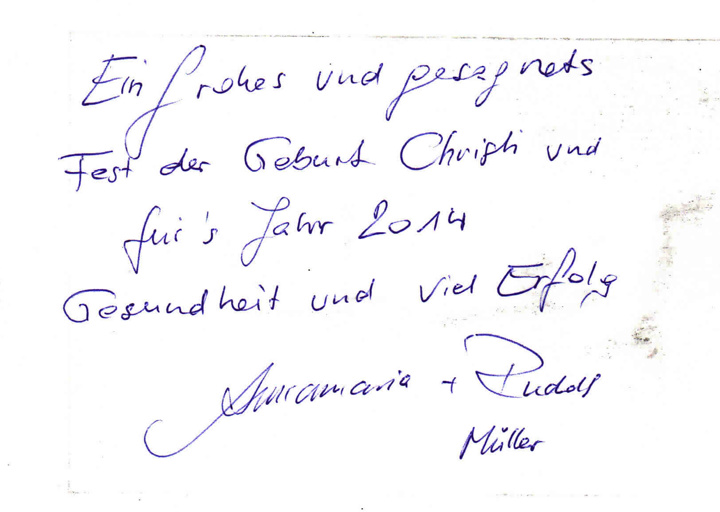 Ein frohes und gesegnets
Fest der Geburt Christi und
für's Jahr 2014
Gesundheit und viel Erfolg
Annamaria + Rudolf
Müller